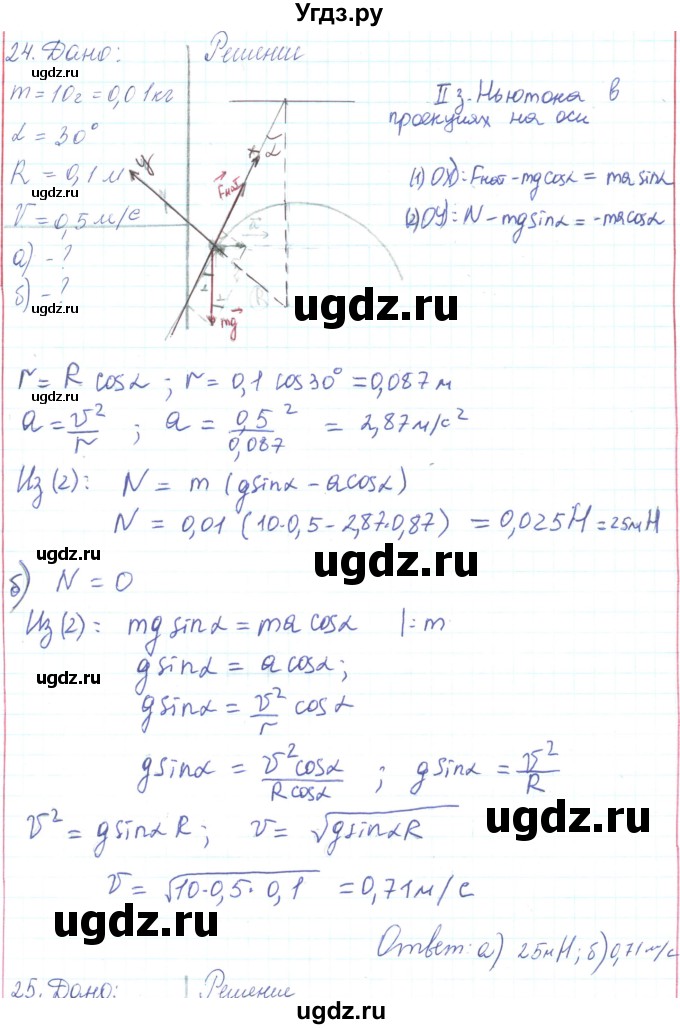 Угдз.ру
24. Дано:
Решение
ugdz.ru
m = 10г = 0,01 кг
α = 30°
R = 0,1 м
ugdz.ru
V = 0,5 м/с
а) – ?
б) – ?
ugdz.ru
y
x
α
Fнат
a
α
R
mg
II з. Ньютона в
проекциях на оси
(1) OX): Fнат - mg cosα = ma sinα
(2) OY): N - mg sinα = -ma cosα
ugdz.ru
r = R cosα ; r = 0,1 cos30° = 0,087 м
a = v²/r ; a = 0,5²/0,087 = 2,87 м/с²
ugdz.ru
Из (2): N = m (g sinα - a cosα)
N = 0,01 (10·0,5 - 2,87·0,87) = 0,025 Н = 25мН
ugdz.ru
б) N = 0
Из (2): mg sinα = ma cosα |:m
g sinα = a cosα;
ugdz.ru
g sinα = v²/r cosα
g sinα = v² cosα / R cosα ; g sinα = v²/R
v² = g sinα R; v = √g sinα R
ugdz.ru
v = √10·0,5·0,1 = 0,71 м/с
Ответ: а) 25мН; б) 0,71 м/с
ugdz.ru
25. Дано:
Решение
ugdz.ru